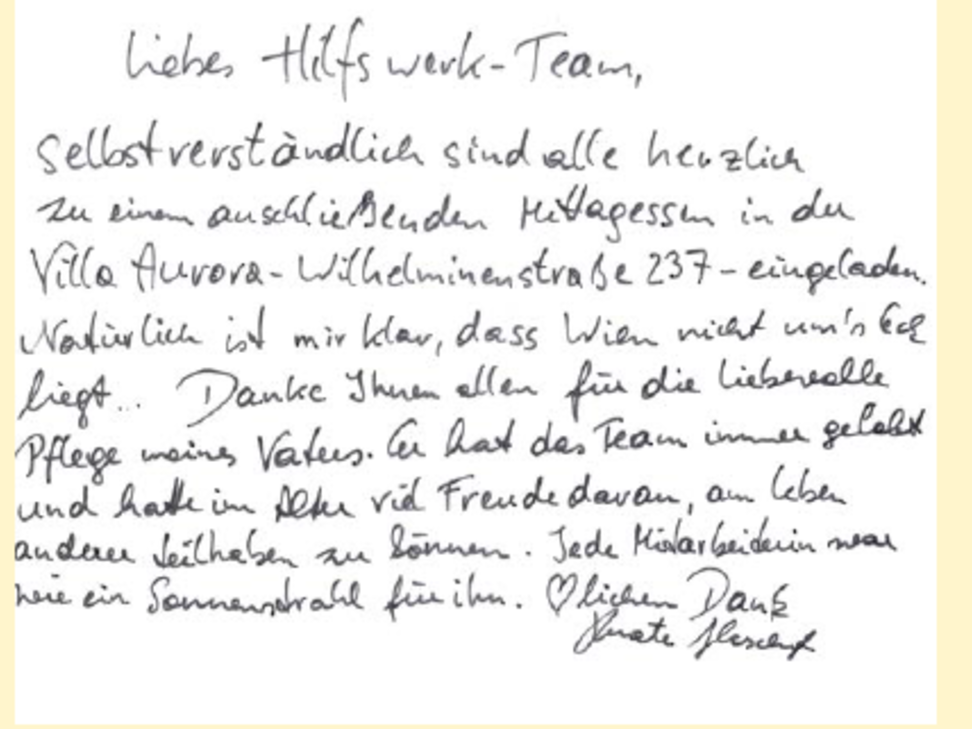 Liebes Hilfswerk-Team,
selbstverständlich sind alle herzlich
zu einem anschließenden Mittagessen in der
Villa Aurora - Wilhelminenstraße 237 - eingeladen.
Natürlich ist mir klar, dass Wien nicht um's Eck
liegt... Danke Ihnen allen für die liebevolle
Pflege meines Vaters. Er hat das Team immer gelobt
und hatte im Alter viel Freude davan, am Leben
anderer teilhaben zu können. Jede Mitarbeiterin war
wie ein Sonnenstrahl für ihn. ♡lichen Dank
Renate